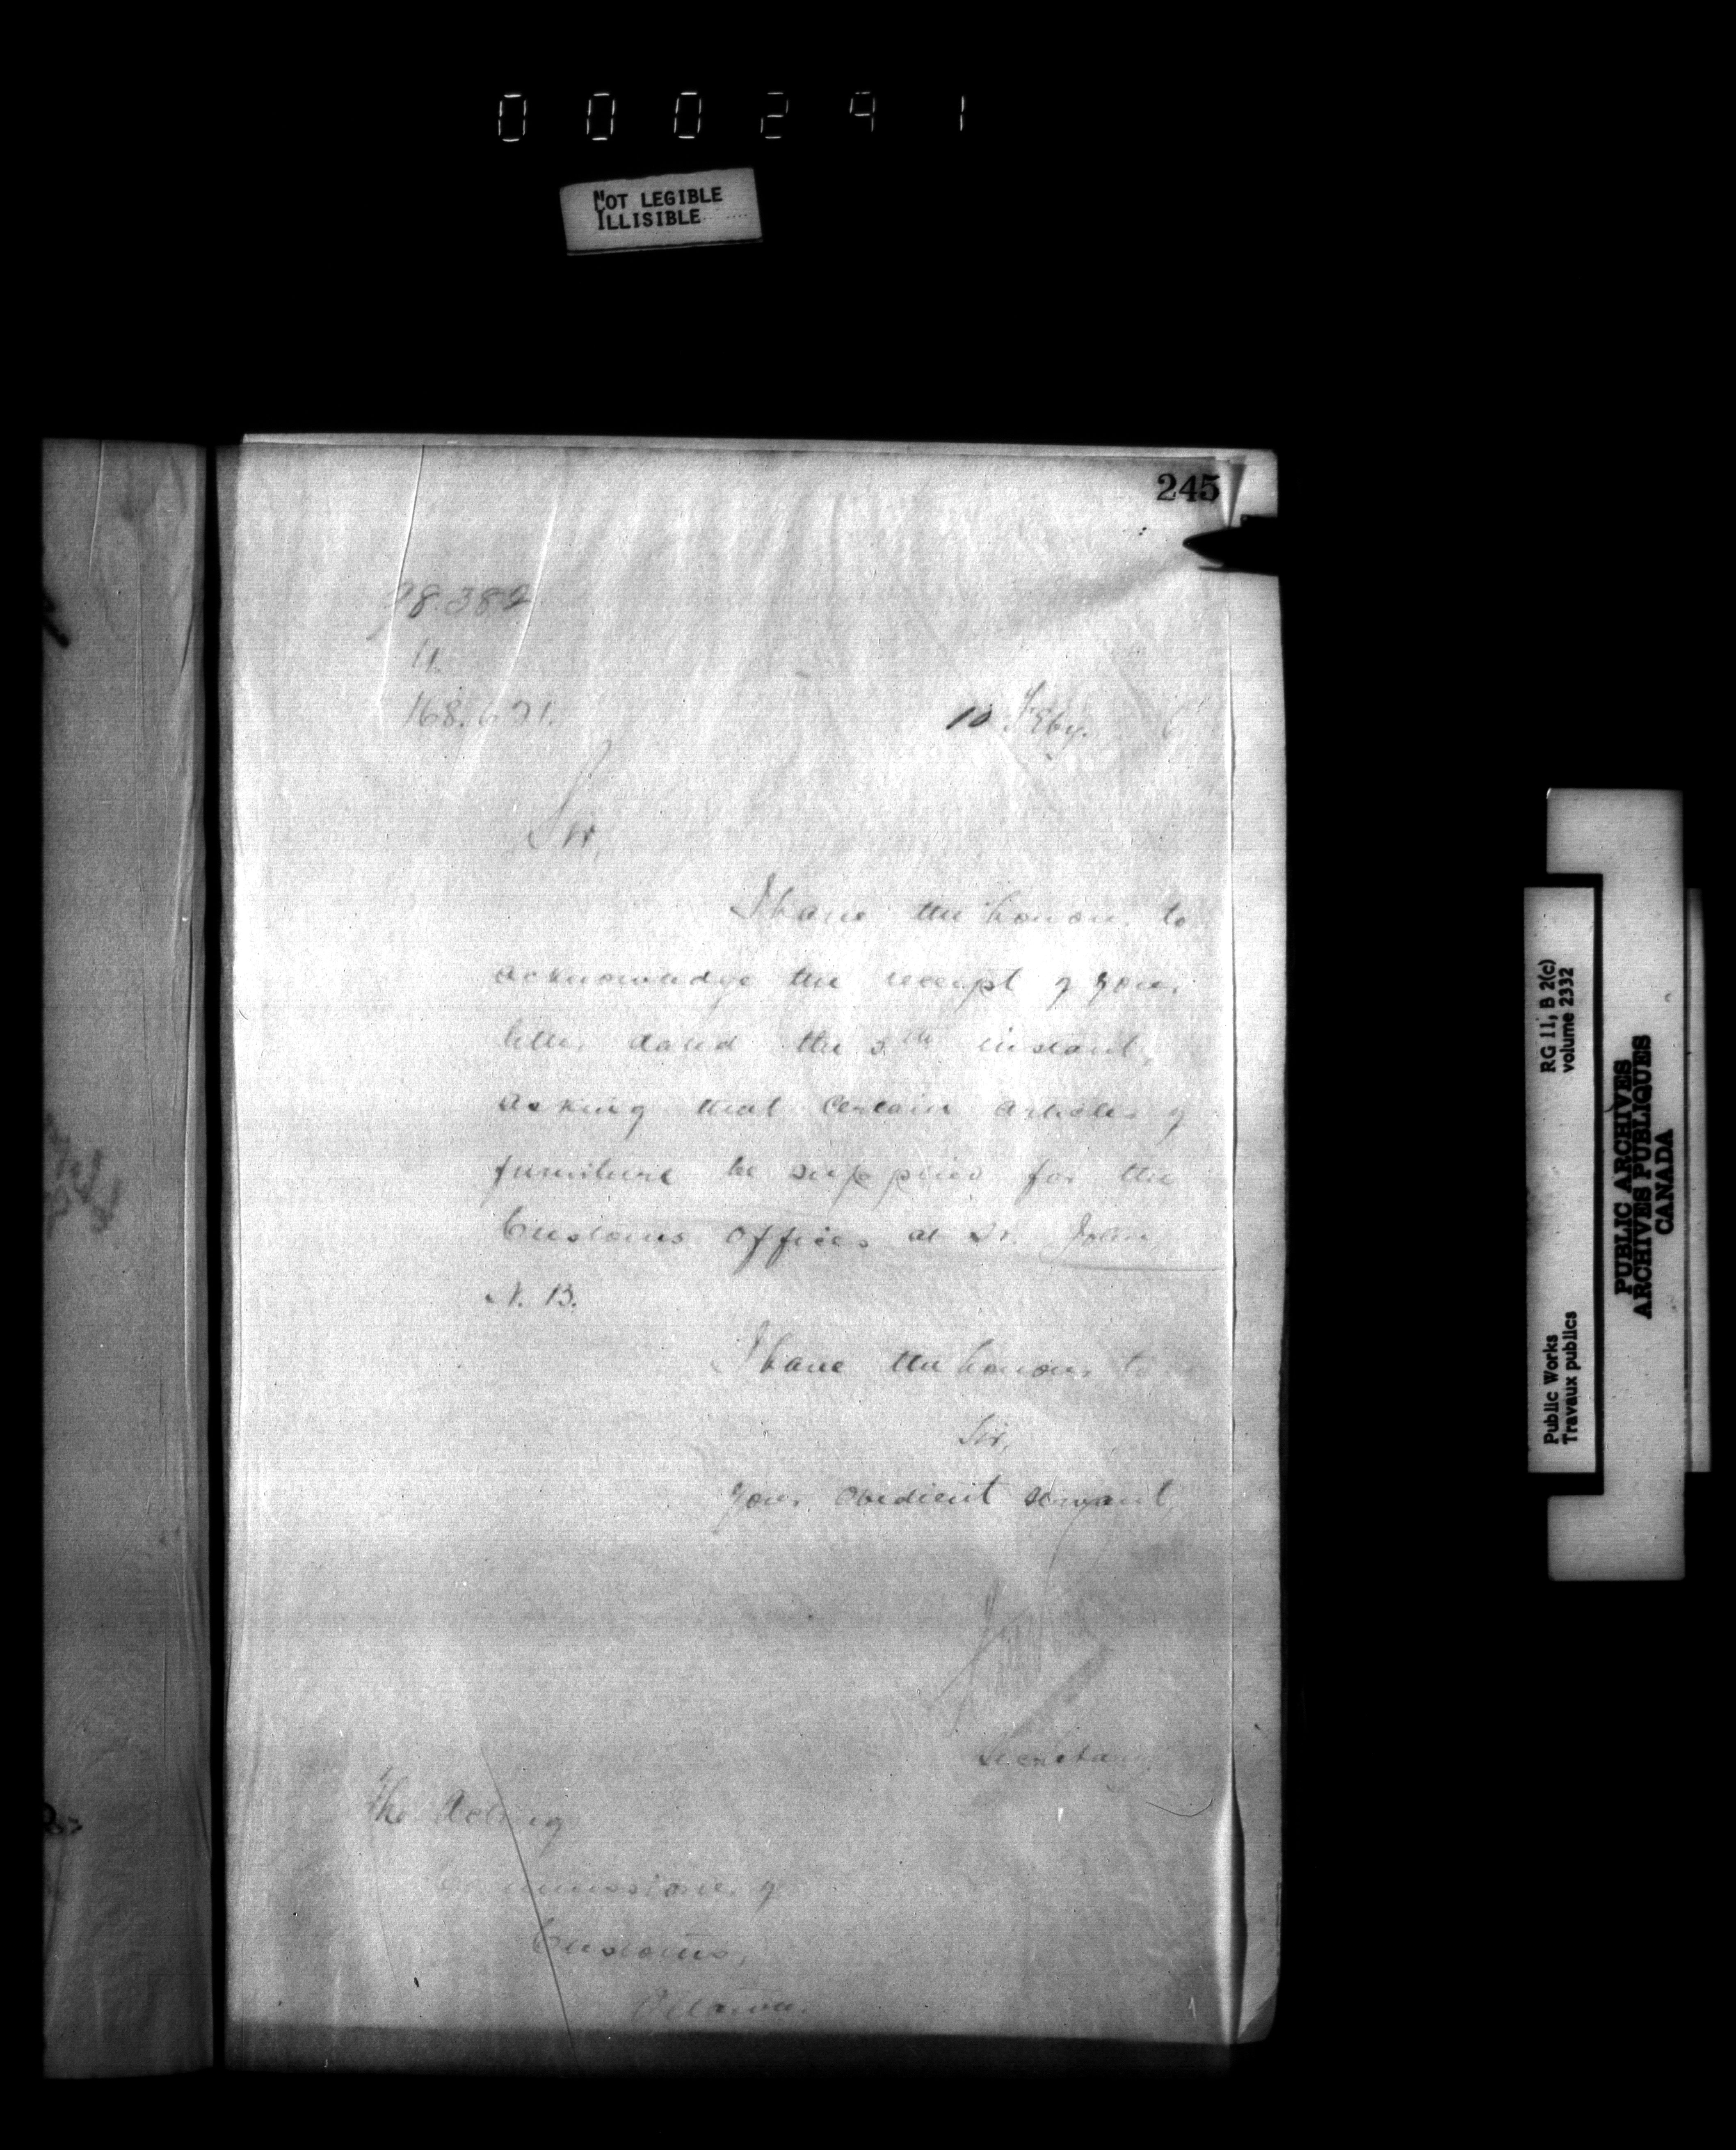 000291
NOT LEGIBLE
ILLISIBLE
245
98.382
11.
168.671.
10 Feby. 6
Sir,
I have the honour to
acknowledge the receipt of your
letter dated the 5th instant,
asking that certain articles of
furniture be supplied for the
Customs Offices at St. John
N. B.
I have the honour to
Sir,
Your obedient servant,
Secretary
The Acting
Commissioner of
Customs,
Ottawa.
RG 11, B 2(c)
volume 2332
Public Works
Travaux publics
PUBLIC ARCHIVES
ARCHIVES PUBLIQUES
CANADA